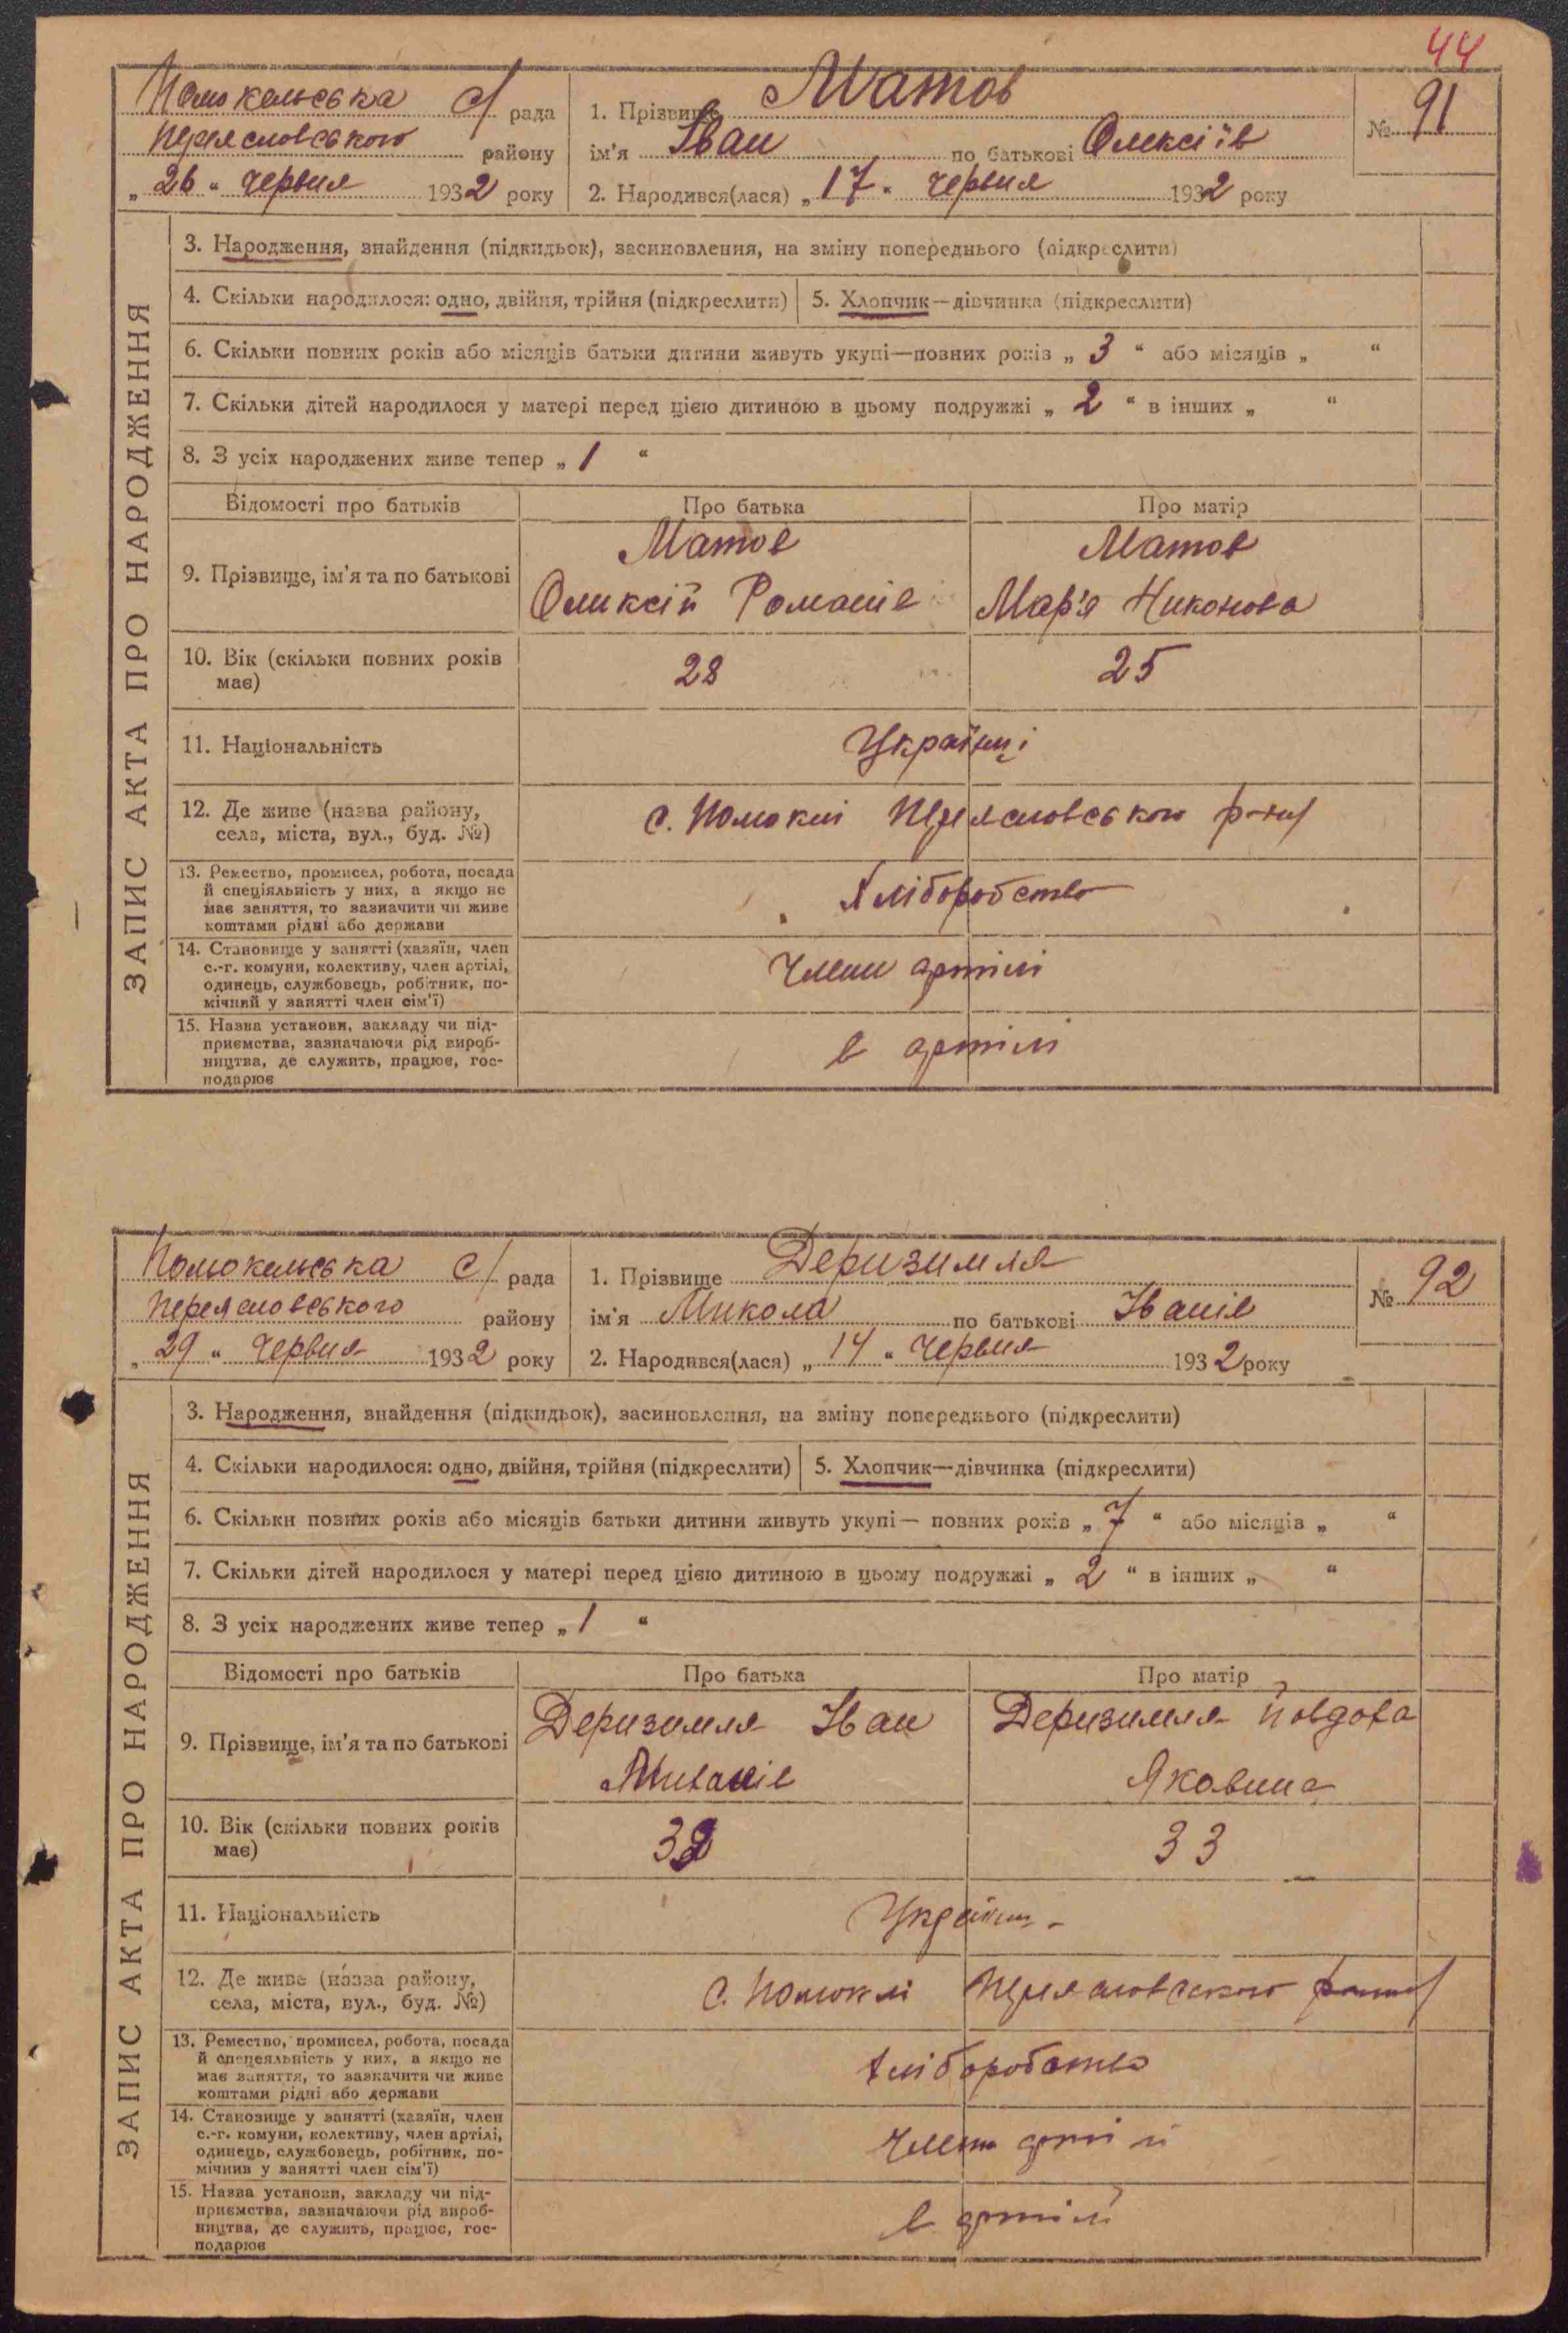 44
Помокельська с/рада
Переяславського району
„26“ червня 1932 року
1. Прізвище Матов
ім'я Іван по батькові Олексіїв
2. Народився(лася) „17“ червня 1932 року
№ 91
ЗАПИС АКТА ПРО НАРОДЖЕННЯ
3. Народження, знайдення (підкидьок), засиновлення, на зміну попереднього (підкреслити)
4. Скільки народилося: одно, двійня, трійня (підкреслити) 5. Хлопчик—дівчинка (підкреслити)
6. Скільки повних років або місяців батьки дитини живуть укупі—повних років „3“ або місяців „ “
7. Скільки дітей народилося у матері перед цією дитиною в цьому подружжі „2“ в інших „ “
8. З усіх народжених живе тепер „1“
Відомості про батьків Про батька Про матір
9. Прізвище, ім'я та по батькові
Матов
Оликсій Романів
Матов
Мар'я Никонова
10. Вік (скільки повних років
має)
28 25
11. Національність Українці
12. Де живе (назва району,
села, міста, вул., буд. №)
с. Помоклі Переяславського р-ну
13. Ремество, промисел, робота, посада
й спеціяльність у них, а якщо не
має заняття, то зазначити чи живе
коштами рідні або держави
Хліборобство
14. Становище у занятті (хазяїн, член
с.-г. комуни, колективу, член артілі,
одинець, службовець, робітник, по-
мічний у занятті член сім'ї)
Члени артілі
15. Назва установи, закладу чи під-
приємства, зазначаючи рід вироб-
ництва, де служить, працює, гос-
подарює
в артілі
Помокельська с/рада
Переяславського району
„29“ червня 1932 року
1. Прізвище Деризимля
ім'я Микола по батькові Іванів
2. Народився(лася) „14“ червня 1932 року
№ 92
ЗАПИС АКТА ПРО НАРОДЖЕННЯ
3. Народження, знайдення (підкидьок), засиновлення, на зміну попереднього (підкреслити)
4. Скільки народилося: одно, двійня, трійня (підкреслити) 5. Хлопчик—дівчинка (підкреслити)
6. Скільки повних років або місяців батьки дитини живуть укупі— повних років „7“ або місяців „ “
7. Скільки дітей народилося у матері перед цією дитиною в цьому подружжі „2“ в інших „ “
8. З усіх народжених живе тепер „1“
Відомості про батьків Про батька Про матір
9. Прізвище, ім'я та по батькові
Деризимля Іван
Деризимля Йовдова
Яковина
10. Вік (скільки повних років
має)
33
11. Національність Українці
12. Де живе (назва району,
села, міста, вул., буд. №)
с. Помоклі Переяславського
13. Ремество, промисел, робота, посада
й спецеяльність у них, а якщо не
має заняття, то зазначити чи живе
коштами рідні або держави
Хліборобство
14. Становище у занятті (хазяїн, член
с.-г. комуни, колективу, член артілі,
одинець, службовець, робітник, по-
мічнив у занятті член сім'ї)
Члени артілі
15. Назва установи, закладу чи під-
приємства, зазначаючи рід вироб-
ництва, де служить, працює, гос-
подарює
в артілі